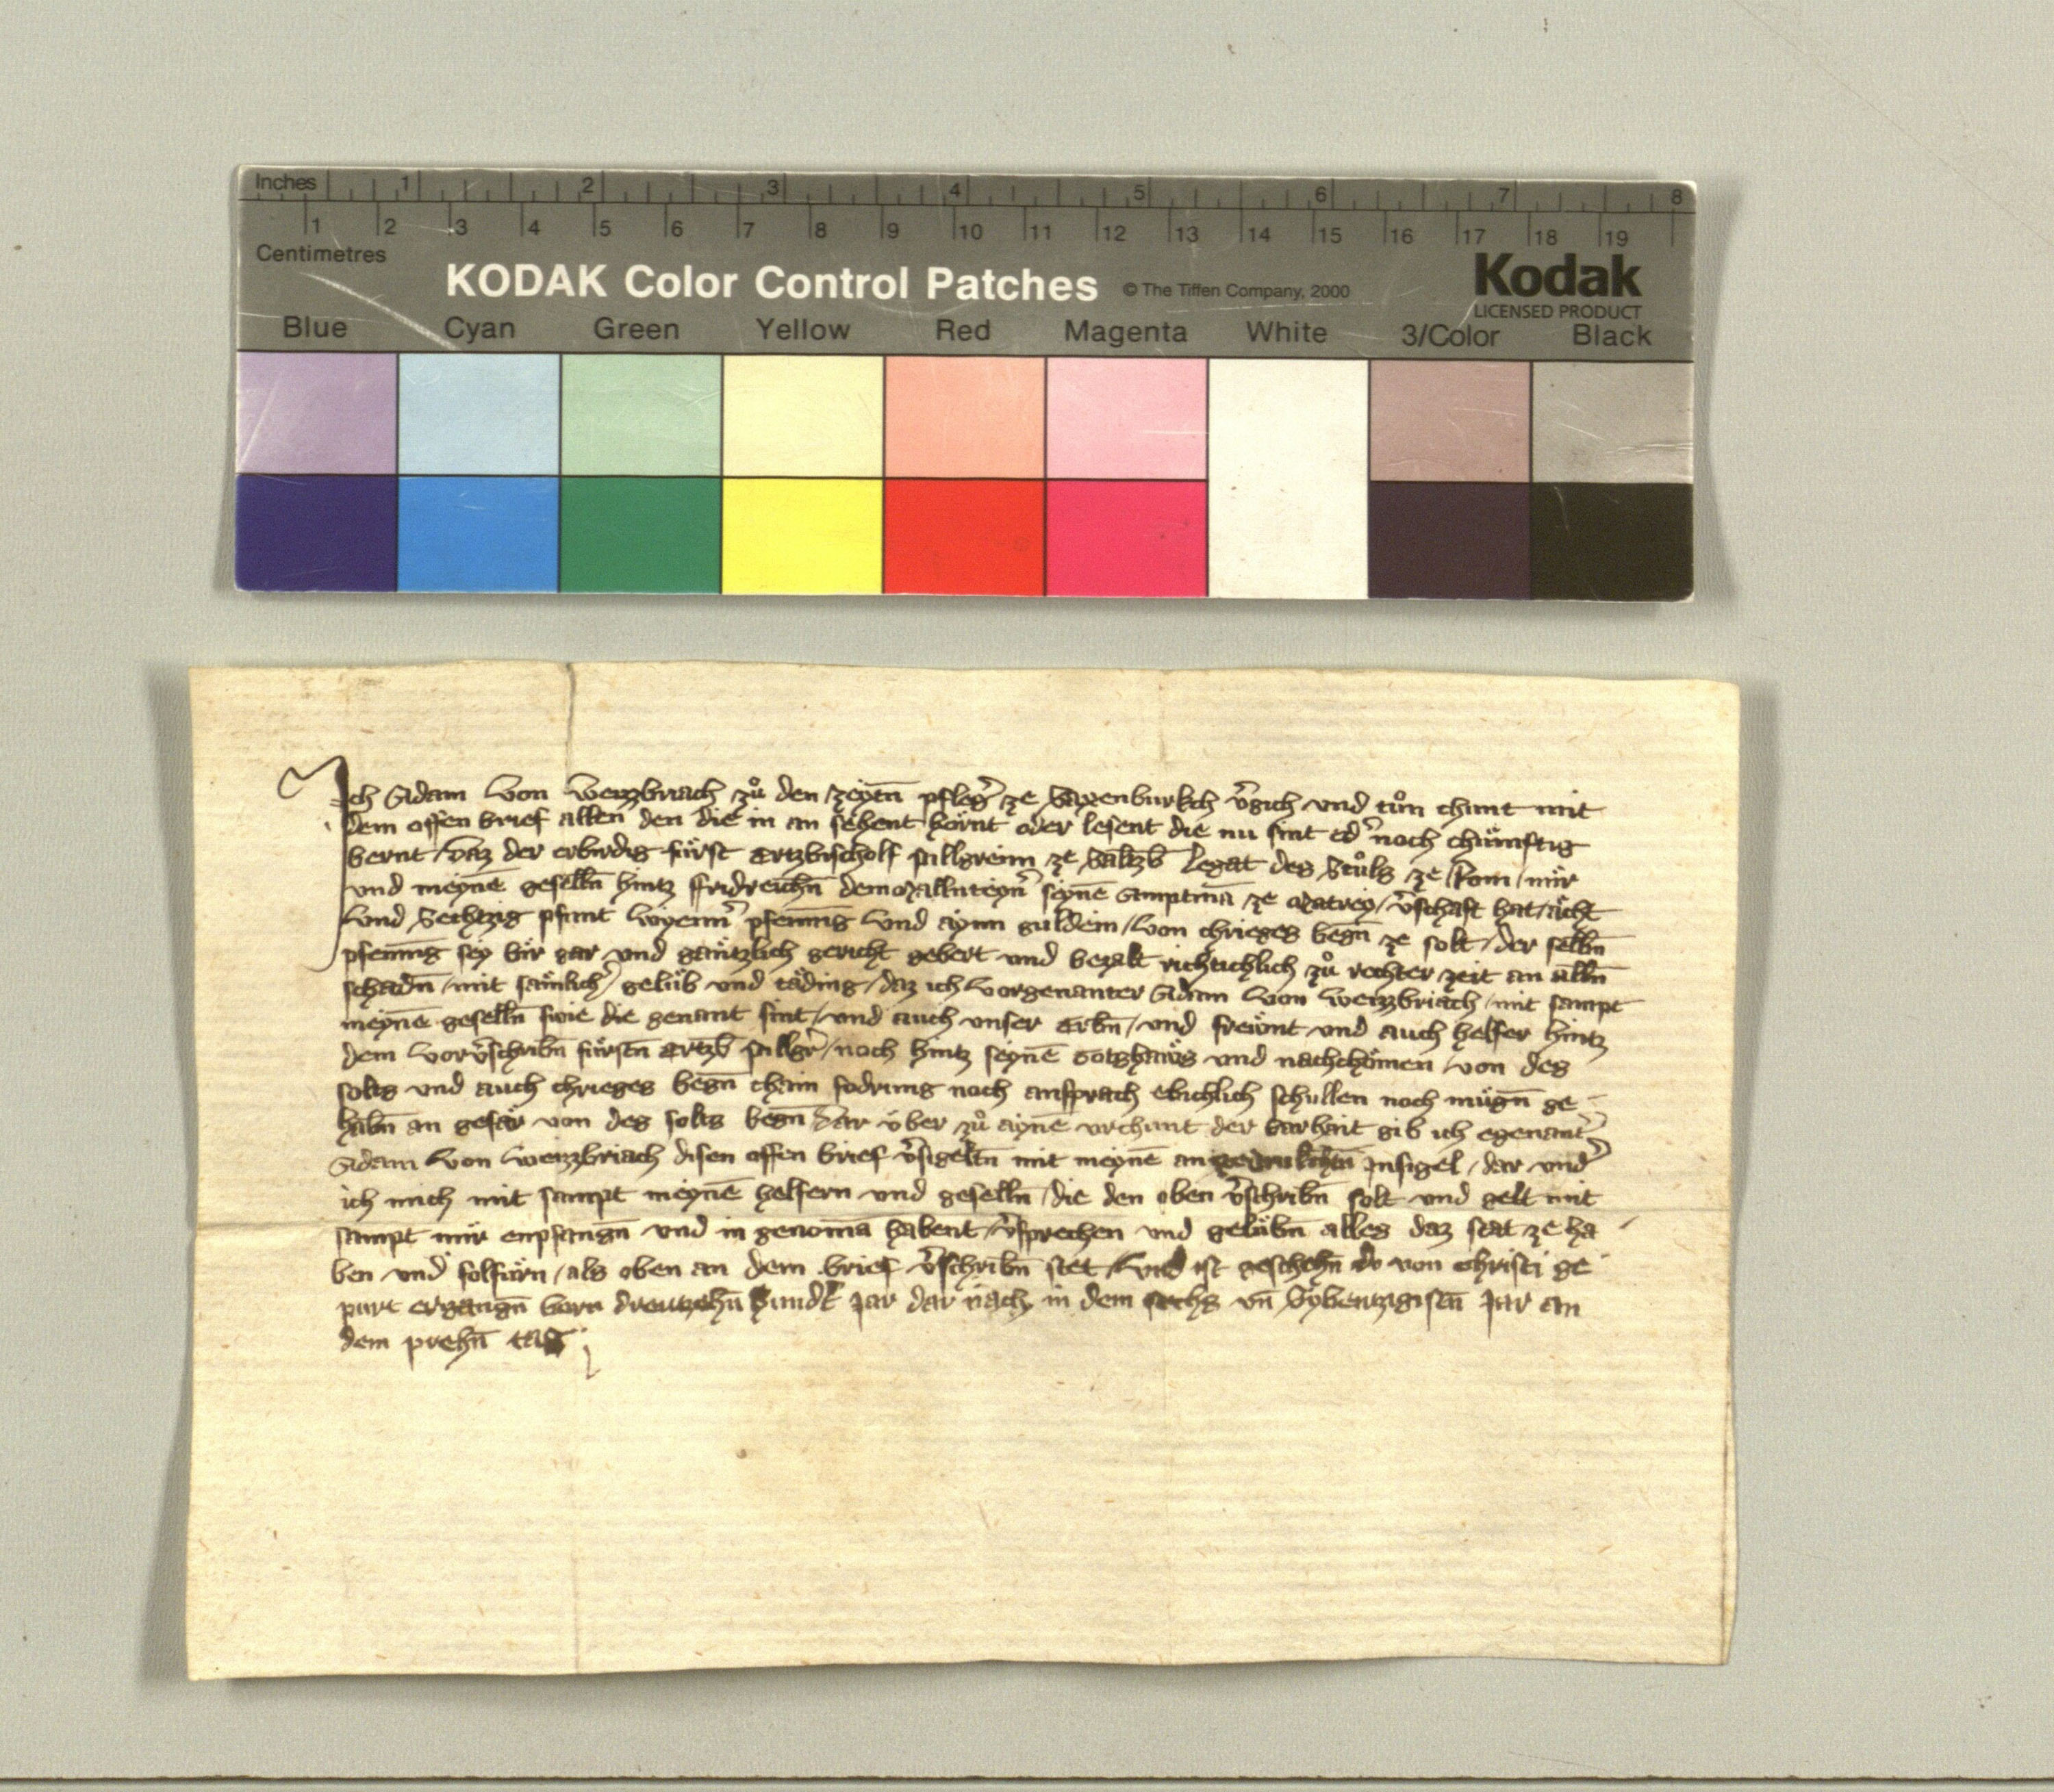 Inches 1 2 3 4 5 6 7 8
1 2 3 4 5 6 7 8 9 10 11 12 13 14 15 16 17 18 19
Centimetres
KODAK Color Control Patches © The Tiffen Company, 2000 Kodak
LICENSED PRODUCT
Blue Cyan Green Yellow Red Magenta White 3/Color Black
Ich Adam von Weizbriach zů den zeytn̄ pfleg̉ ze Saxenburkch v̉gich vnd tůn chunt mit
dem offen brief allen den die in an sehent hörnt oder lesent die nu sint od̉ noch chümftig
bernt / daz der erbirdig fürst Ertzbischolf pillgreim ze Saltzb̄ Legat des Stůls ze Rom / mir
vnd meynē geselln̄ hintz ffridreichn̄ dem seynē Amptmā ze Matrey / v̉schaft hat / ächt
vnd Sechtzig pfunt wyenn̉ pfenn̄ig vnd aynn guldein / von chrieges begn̄ ze solt / der selbn̄
pfenn̄ig sey bir gar vnd gäntzlich gericht gebert vnd bezalt richtichlich zů rechter zeit an alln̄
schadn̄ / mit sämlich̉ gelüb vnd täding / daz ich vorgenanter Adam von Weizbriach / mit sampt
meynē geselln̄ swie die genant sint / vnd auch vnser Erbn̄ / vnd freünt vnd auch helfer hintz
dem vorv̉schribn̄ fürstn̄ Ertzb̄ pillgr̉ / noch hintz seynē Gotshaws vnd nachchömen / von des
solts vnd auch chrieges begn̄ chain fodrung noch ansprach ebichlich schullen noch mügn̄ ge
habn̄ an gefär von des solts begn̄ Dar über zů aynē vrchunt der barhait gib ich egenant̉
Adam von Weizbriach disen offen brief v̉sigeltn̄ mit meynē an Insigel / dar vnd̉
ich mich mit sampt meynē helfern vnd geselln̄ / die den oben v̉schribn̄ solt vnd gelt mit
sampt mir enpfangn̄ vnd in genomā habent / v̉sprechen vnd gelübn̄ alles daz stat ze ha
ben vnd folfürn / als oben an dem brief v̉schribn̄ stet / vnd ist geschehn̄ do von christi ge
purt ergangn̄ barn dreutzehn̄ hund̉t Jar dar nach in dem sechs vn̄ Sybentzigistn̄ Jar an
dem prehn̄ tag